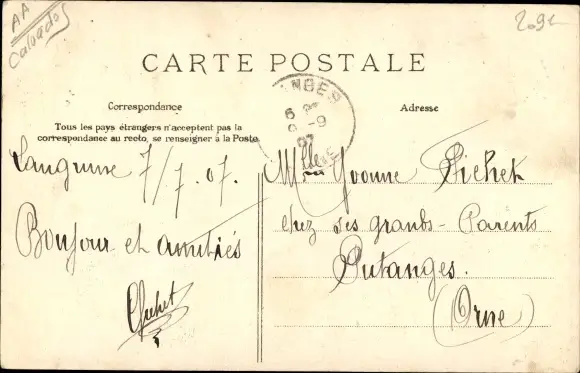 AA
Calvados
2091
CARTE POSTALE
Correspondance
Tous les pays étrangers n'acceptent pas la
correspondance au recto, se renseigner à la Poste
Langrune 7/7.07.
Bonjour et amitiés
Pichet
Adresse
NGES
6
9-9
07
Mlle Yvonne Pichet
chez ses grands-Parents
Putanges.
(Orne)